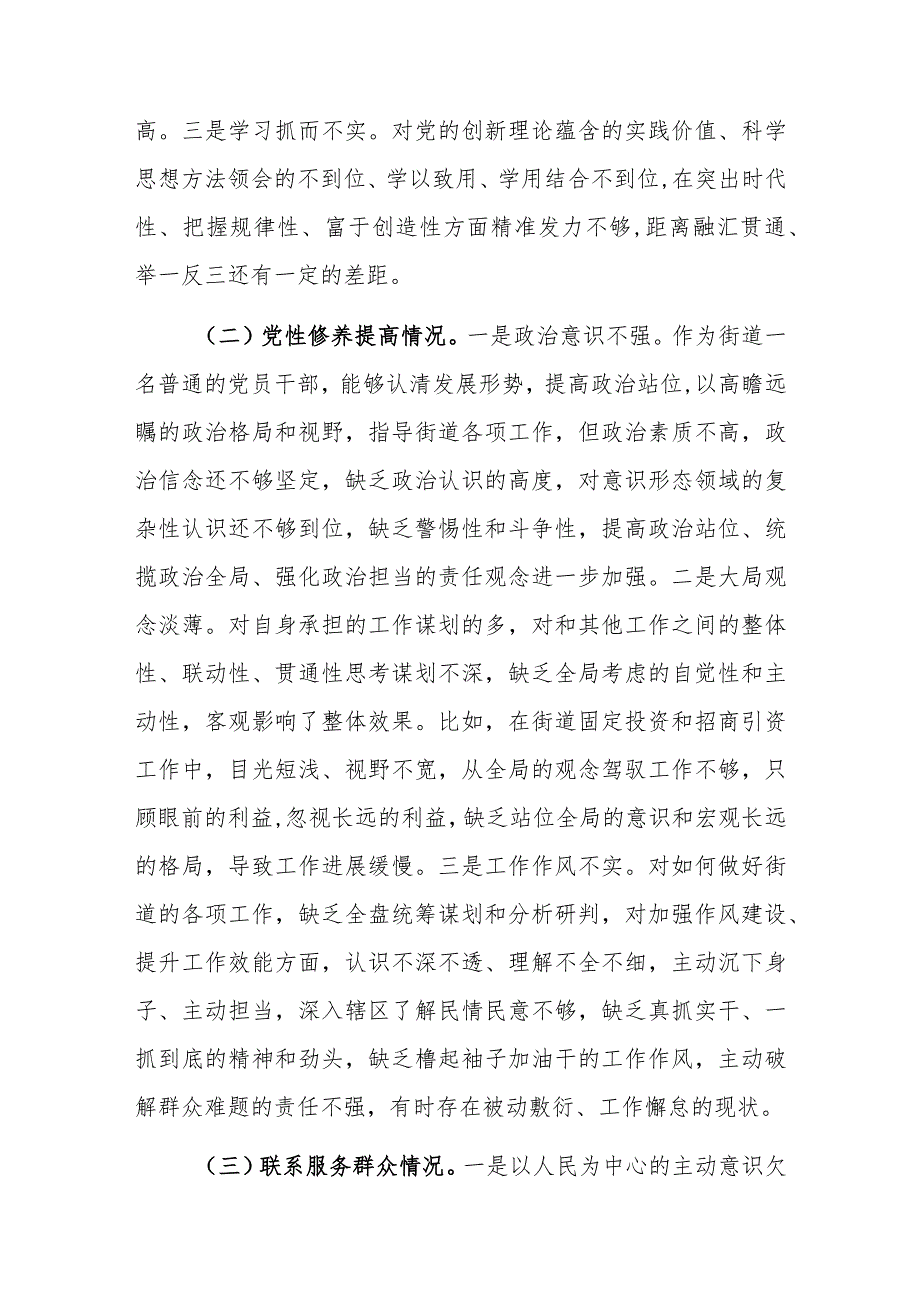 高。三是学习抓而不实。对党的创新理论蕴含的实践价值、科学
思想方法领会的不到位、学以致用、学用结合不到位,在突出时代
性、把握规律性、富于创造性方面精准发力不够,距离融汇贯通、
举一反三还有一定的差距。
（二）党性修养提高情况。一是政治意识不强。作为街道一
名普通的党员干部，能够认清发展形势，提高政治站位,以高瞻远
瞩的政治格局和视野，指导街道各项工作，但政治素质不高，政
治信念还不够坚定，缺乏政治认识的高度，对意识形态领域的复
杂性认识还不够到位，缺乏警惕性和斗争性，提高政治站位、统
揽政治全局、强化政治担当的责任观念进一步加强。二是大局观
念淡薄。对自身承担的工作谋划的多，对和其他工作之间的整体
性、联动性、贯通性思考谋划不深，缺乏全局考虑的自觉性和主
动性，客观影响了整体效果。比如，在街道固定投资和招商引资
工作中，目光短浅、视野不宽，从全局的观念驾驭工作不够，只
顾眼前的利益,忽视长远的利益,缺乏站位全局的意识和宏观长远
的格局，导致工作进展缓慢。三是工作作风不实。对如何做好街
道的各项工作，缺乏全盘统筹谋划和分析研判，对加强作风建设、
提升工作效能方面，认识不深不透、理解不全不细，主动沉下身
子、主动担当，深入辖区了解民情民意不够，缺乏真抓实干、一
抓到底的精神和劲头，缺乏橹起袖子加油干的工作作风，主动破
解群众难题的责任不强，有时存在被动敷衍、工作懈怠的现状。
（三）联系服务群众情况。一是以人民为中心的主动意识欠